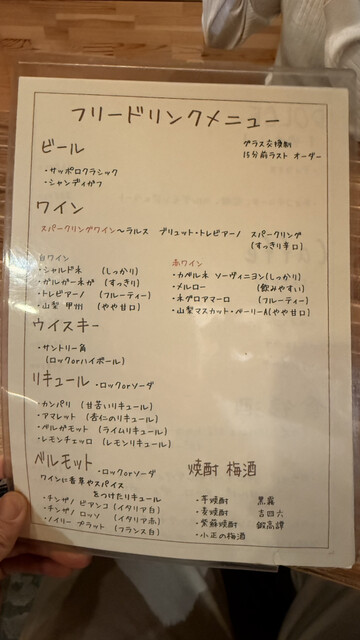 フリードリンクメニュー
グラス交換制
15分前ラスト オーダー
ビール
・サッポロクラシック
・シャンディガフ
ワイン
スパークリングワイン～ラルス ブリュット・トレビアーノ スパークリング
(すっきり辛口)
白ワイン
・シャルドネ (しっかり)
・ガルガーネガ (すっきり)
・トレビアーノ (フルーティー)
・山梨 甲州 (やや甘口)
赤ワイン
・カベルネ ソーヴィニヨン(しっかり)
・メルロー (飲みやすい)
・ネグロアマーロ (フルーティー)
・山梨マスカット・ベーリーA(やや甘口)
ウイスキー
・サントリー角
(ロックorハイボール)
リキュール ・ロックorソーダ
・カンパリ (甘苦いリキュール)
・アマレット (杏仁のリキュール)
・ベルガモット (ライムリキュール)
・レモンチェッロ (レモンリキュール)
ベルモット ・ロックorソーダ
ワインに香草やスパイス
をつけたリキュール
・チンザノ ビアンコ (イタリア白)
・チンザノ ロッソ (イタリア赤)
・ノイリー プラット (フランス白)
焼酎 梅酒
・芋焼酎 黒霧
・麦焼酎 吉四六
・紫蘇焼酎 鍛高譚
・小正の梅酒